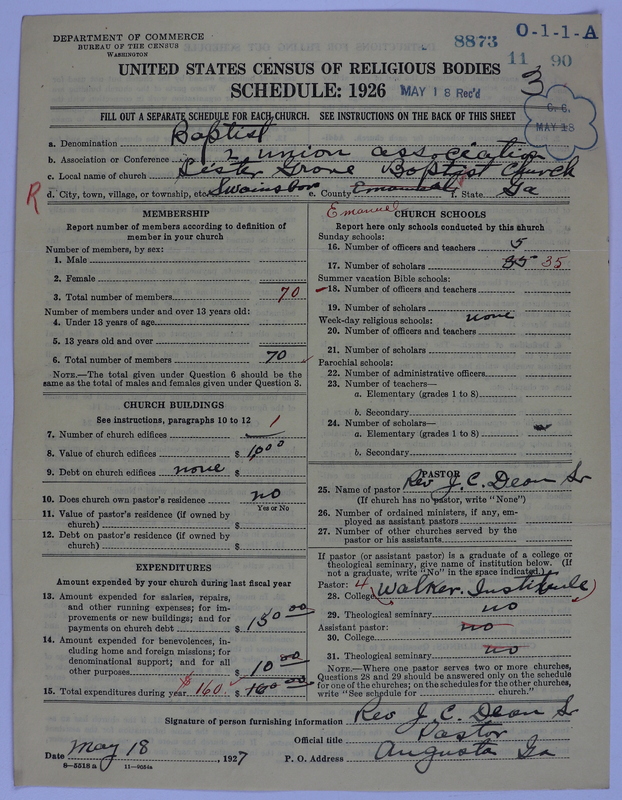 DEPARTMENT OF COMMERCE
BUREAU OF THE CENSUS
WASHINGTON
8873
O-1-1-A
11 90
UNITED STATES CENSUS OF RELIGIOUS BODIES
SCHEDULE: 1926
MAY 18 Rec'd
3
C. G.
MAY 18
FILL OUT A SEPARATE SCHEDULE FOR EACH CHURCH. SEE INSTRUCTIONS ON THE BACK OF THIS SHEET
a. Denomination Baptist
b. Association or Conference union association
c. Local name of church Sister Grove Baptist Church
R
d. City, town, village, or township, etc. Swainsboro e. County Emanuel f. State Ga
Emanuel
MEMBERSHIP
Report number of members according to definition of
member in your church
Number of members, by sex:
1. Male
2. Female
3. Total number of members 70
Number of members under and over 13 years old:
4. Under 13 years of age
5. 13 years old and over
6. Total number of members 70
NOTE.—The total given under Question 6 should be the
same as the total of males and females given under Question 3.
CHURCH BUILDINGS
See instructions, paragraphs 10 to 12
7. Number of church edifices 1
8. Value of church edifices $ 1000
9. Debt on church edifices none $
10. Does church own pastor's residence no
Yes or No
11. Value of pastor's residence (if owned by
church) $
12. Debt on pastor's residence (if owned by
church) $
EXPENDITURES
Amount expended by your church during last fiscal year
13. Amount expended for salaries, repairs,
and other running expenses; for im-
provements or new buildings; and for
payments on church debt $ 150 00
14. Amount expended for benevolences, in-
cluding home and foreign missions; for
denominational support; and for all
other purposes $ 10 00
15. Total expenditures during year $160 $ 160 00
CHURCH SCHOOLS
Report here only schools conducted by this church
Sunday schools:
16. Number of officers and teachers 5
17. Number of scholars 35 35
Summer vacation Bible schools:
18. Number of officers and teachers
19. Number of scholars
Week-day religious schools: none
20. Number of officers and teachers
21. Number of scholars
Parochial schools:
22. Number of administrative officers
23. Number of teachers—
a. Elementary (grades 1 to 8)
b. Secondary
24. Number of scholars—
a. Elementary (grades 1 to 8)
b. Secondary
PASTOR
25. Name of pastor Rev J. C. Dean Sr
(If church has no pastor, write "None")
26. Number of ordained ministers, if any, em-
ployed as assistant pastors
27. Number of other churches served by the
pastor or his assistants
If pastor (or assistant pastor) is a graduate of a college or
theological seminary, give name of institution below. (If
not a graduate, write "No" in the space indicated.)
Pastor: 4
28. College Walker Institute
29. Theological seminary no
Assistant pastor: no
30. College
31. Theological seminary no
NOTE.—Where one pastor serves two or more churches,
Questions 28 and 29 should be answered only on the schedule
for one of the churches; on the schedules for the other churches,
write "See schedule for church."
Signature of person furnishing information Rev J. C. Dean Sr
Official title Pastor
Date May 18, 1927 P. O. Address Augusta Ga
8—5518 a 11—9054a